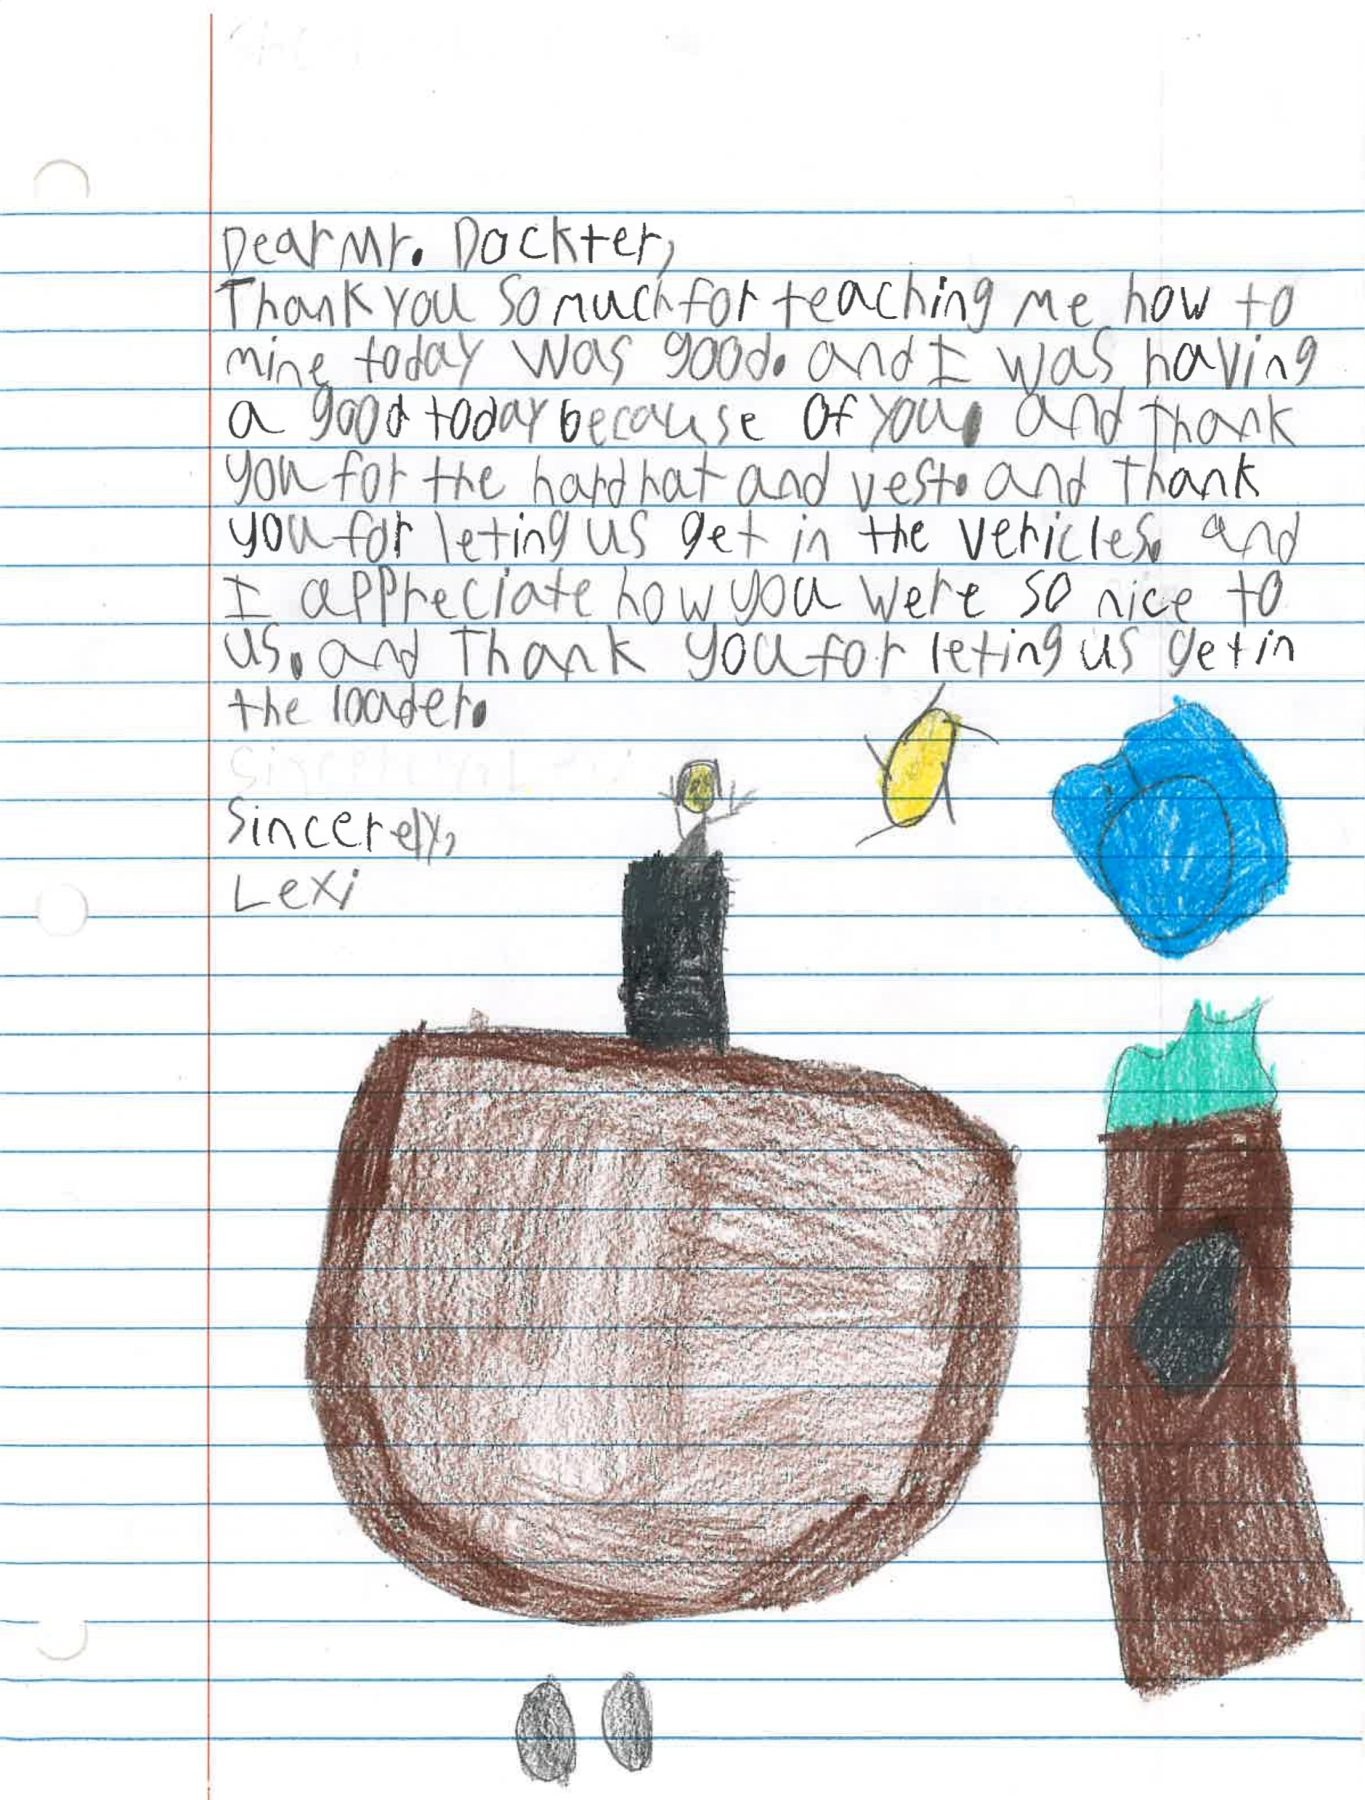 Dear Mr. Dockter,
Thank you so much for teaching me how to
mine today was good. and I was having
a good today because of you. and thank
you for the hardhat and vest. and thank
you for leting us get in the vehicles. and
I appreciate how you were so nice to
us. and Thank you for leting us get in
the loader.
Sincerely,
Lexi